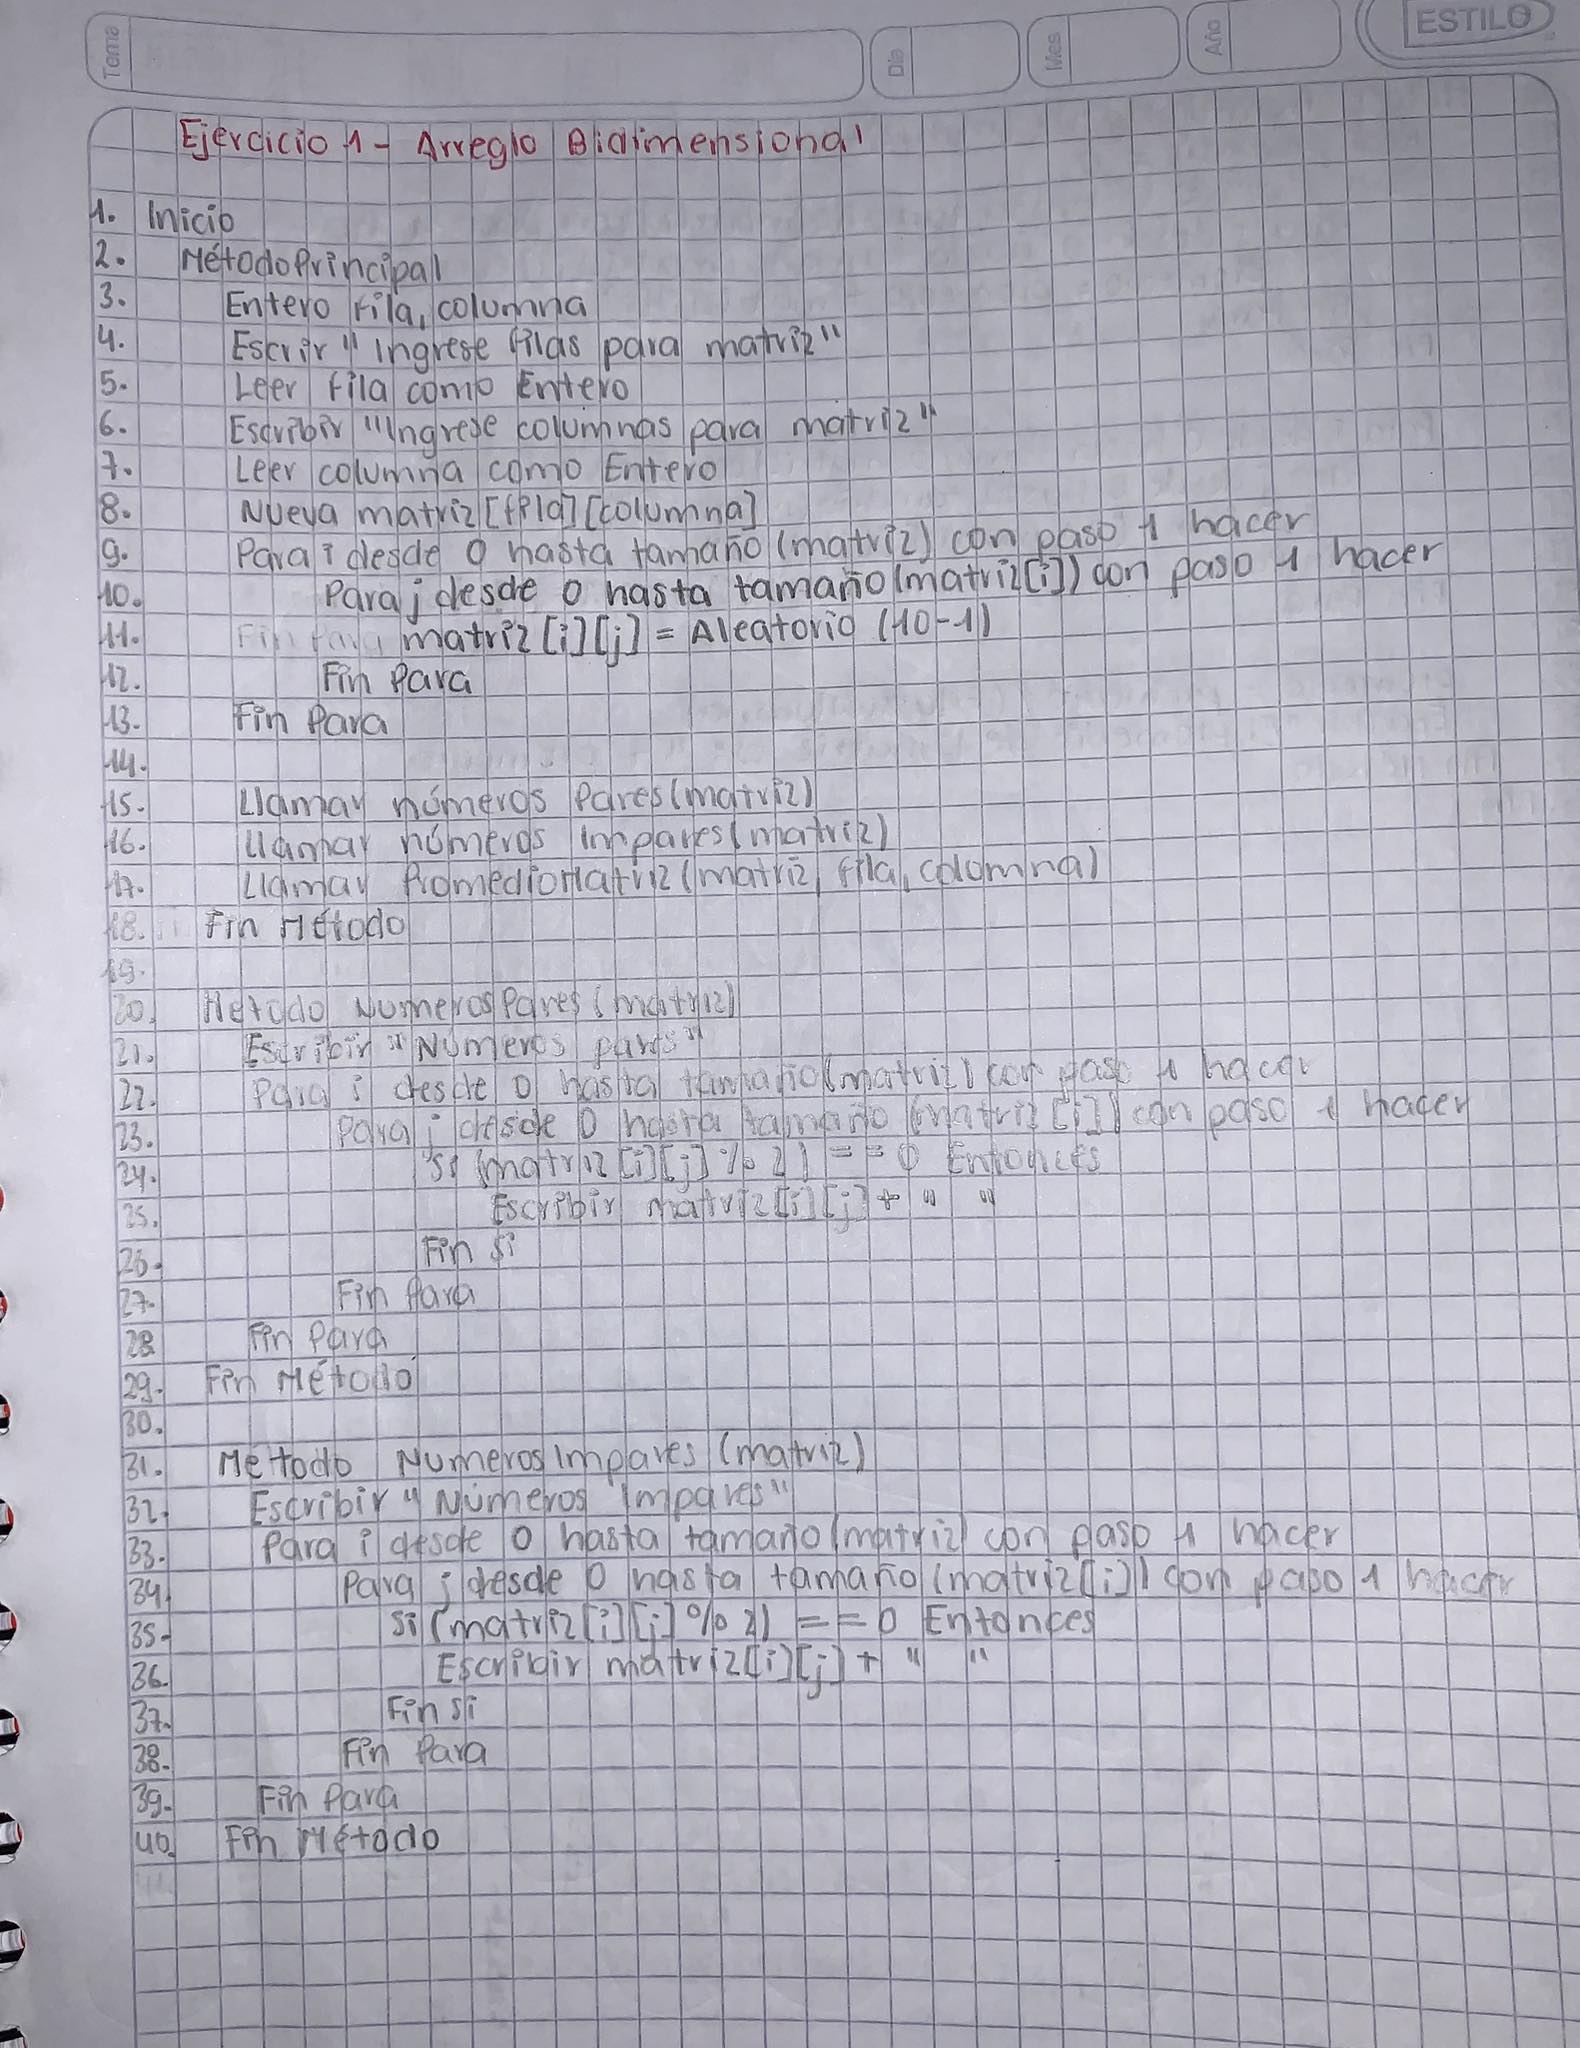 Tema
Dia
Mes
Año
ESTILO
Ejercicio 1 - Arreglo Bidimensional
1. Inicio
2. MétodoPrincipal
3. Entero Fila, columna
4. Escrir "Ingrese filas para matriz"
5. Leer fila como Entero
6. Escribir "Ingrese columnas para matriz"
7. Leer columna como Entero
8. Nueva matriz[fila][columna]
9. Para i desde 0 hasta tamaño (matriz) con paso 1 hacer
10. Para j desde 0 hasta tamaño(matriz[i]) con paso 1 hacer
11. Fin Para matriz[i][j] = Aleatorio (10-1)
12. Fin Para
13. Fin Para
14.
15. Llamar números Pares(matriz)
16. Llamar números Impares(matriz)
17. Llamar PromedioMatriz(matriz, fila, columna)
18. Fin Método
19.
20. Metodo NumerosPares(matriz)
21. Escribir "Números pares"
22. Para i desde 0 hasta tamaño(matriz) con paso 1 hacer
23. Para j desde 0 hasta tamaño (matriz[i]) con paso 1 hacer
24. Si (matriz[i][j] % 2) == 0 Entonces
25. Escribir matriz[i][j] + " "
26. Fin Si
27. Fin Para
28. Fin Para
29. Fin Método
30.
31. Metodo NumerosImpares (matriz)
32. Escribir "Números Impares"
33. Para i desde 0 hasta tamaño(matriz) con paso 1 hacer
34. Para j desde 0 hasta tamaño(matriz[i]) con paso 1 hacer
35. Si (matriz[i][j] % 2) == 0 Entonces
36. Escribir matriz[i][j] + " "
37. Fin Si
38. Fin Para
39. Fin Para
40. Fin Método